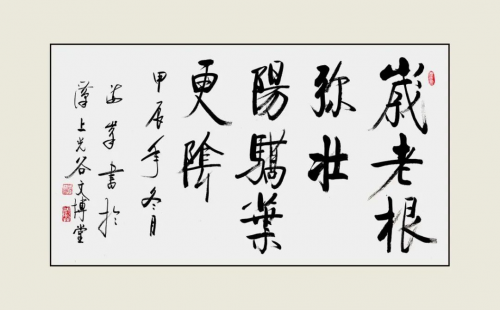 歲老根
弥壯
陽驕葉
更隂
甲辰年冬月
書於
上光谷文博堂